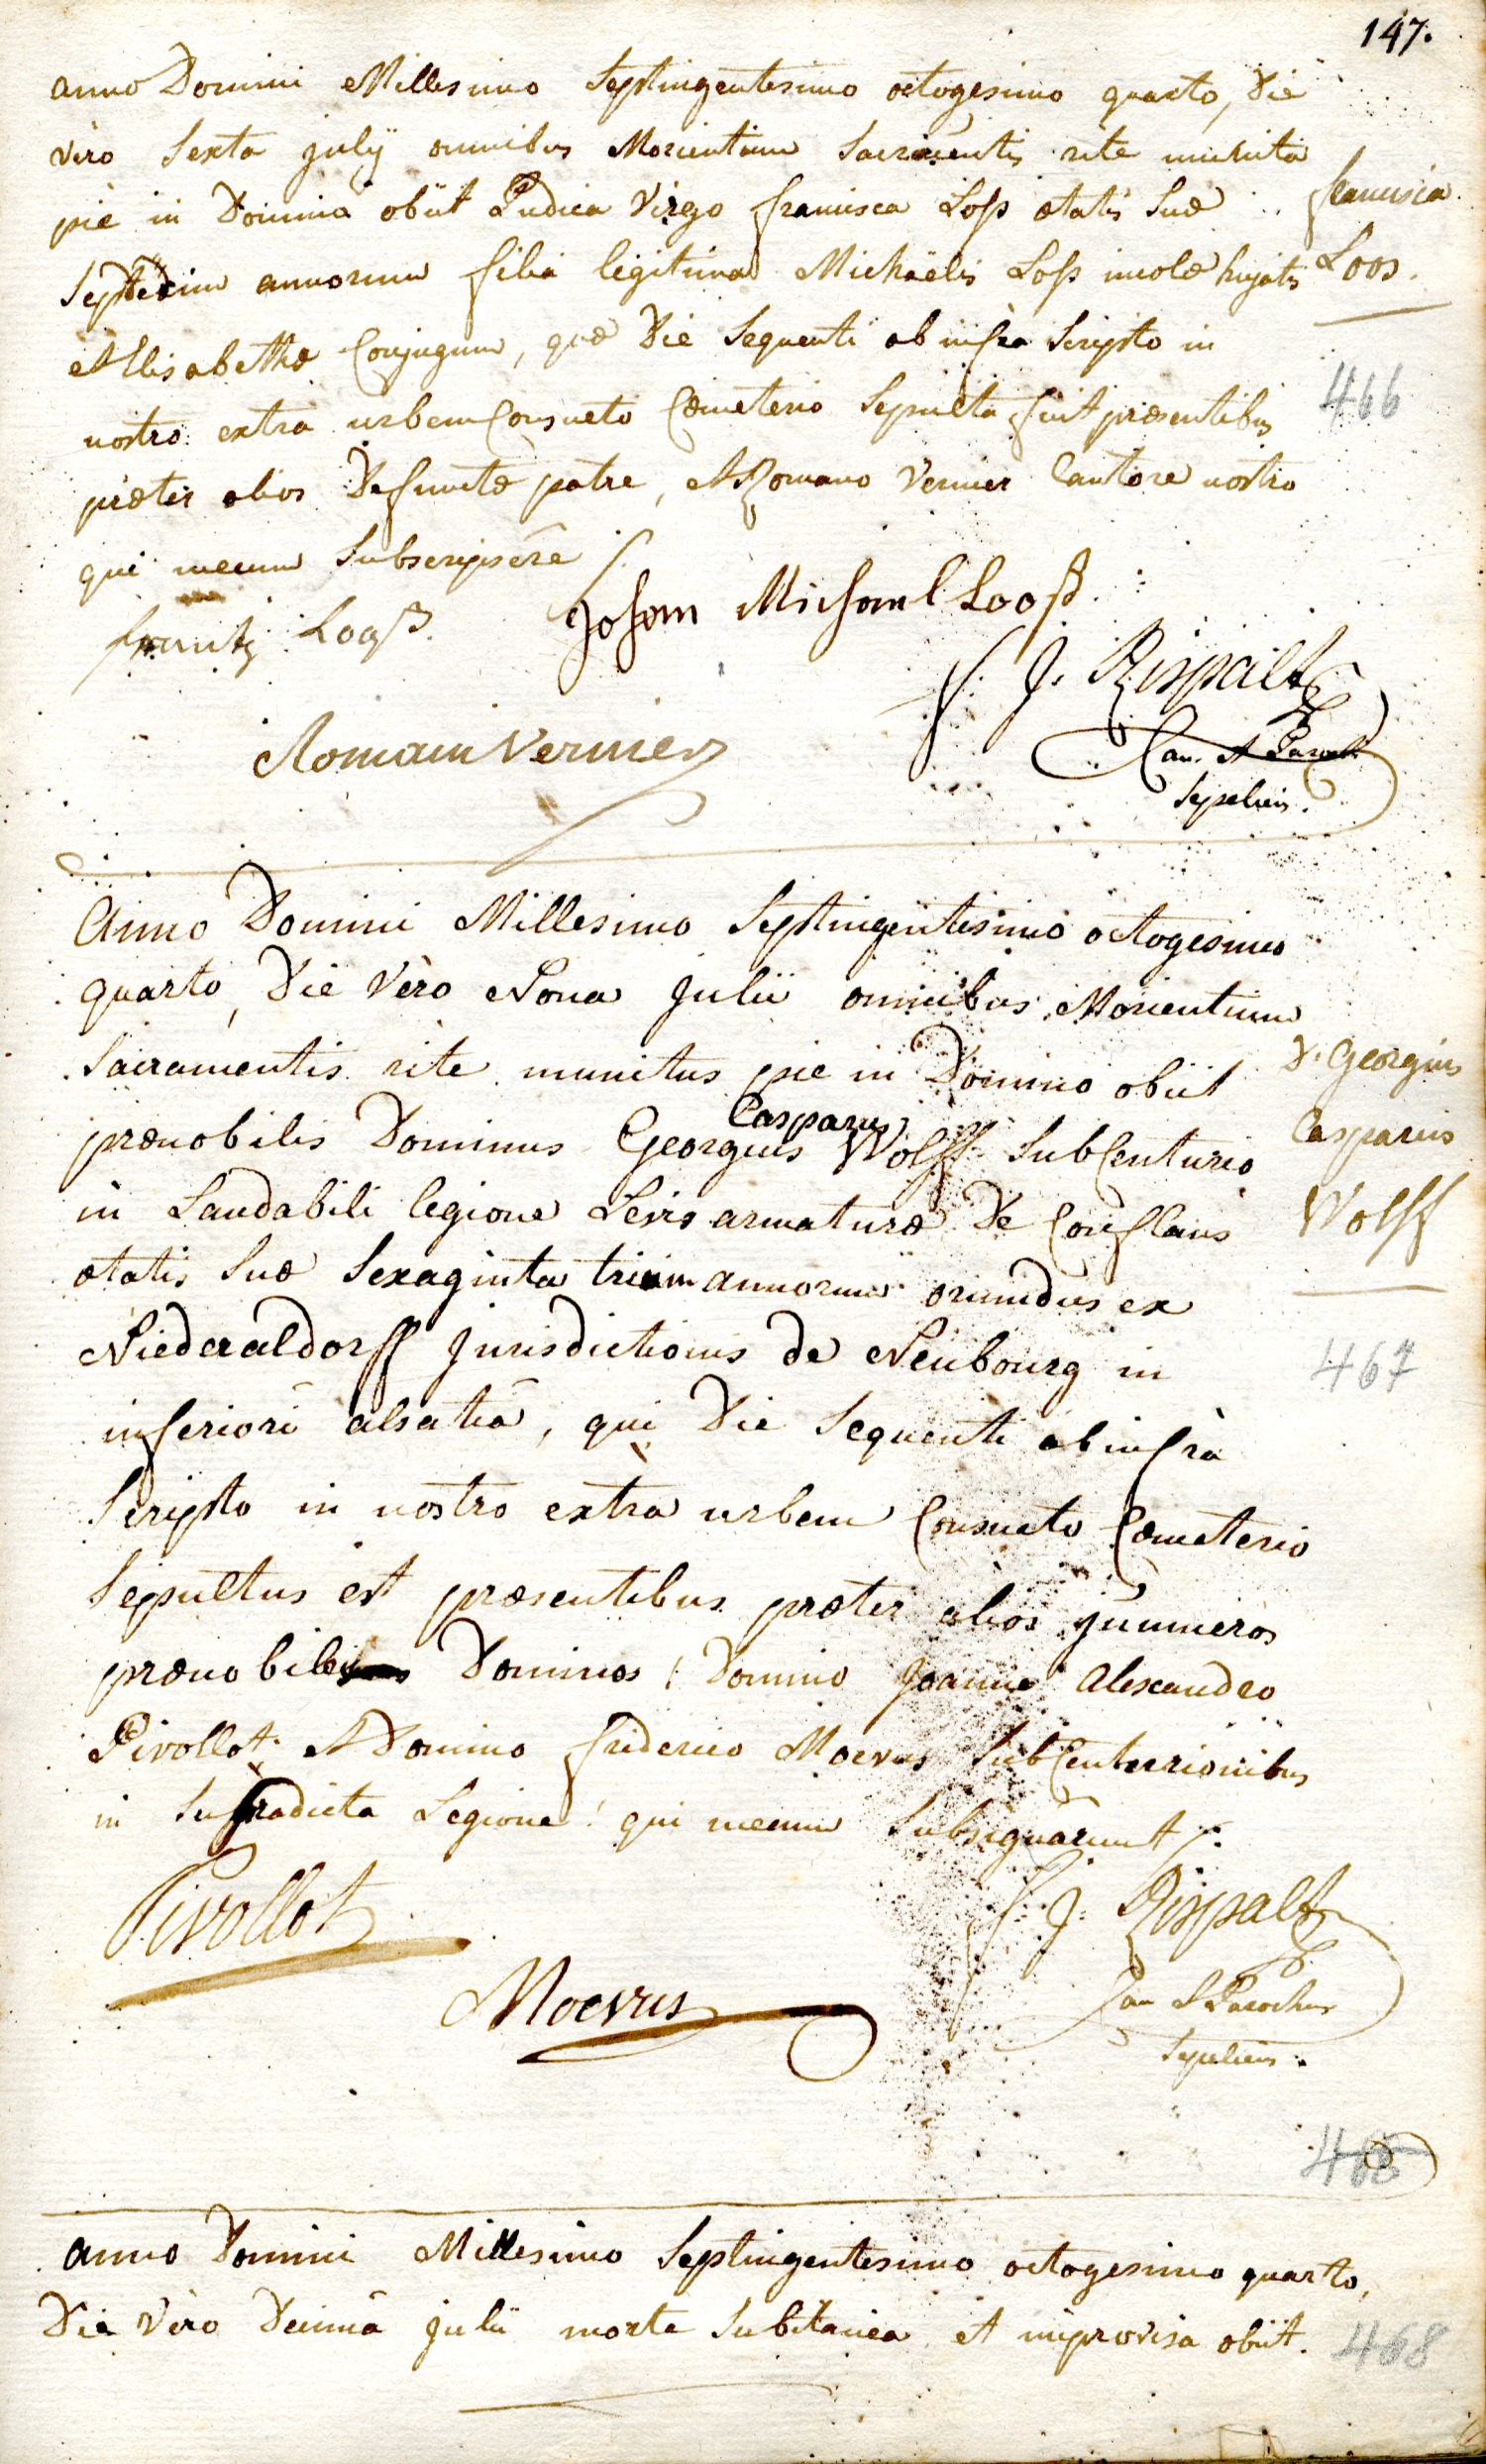 147.
anno Domini Millesimo Septingentesimo octogesimo quarto, Die
vero Sexta julÿ omnibus Morientium Sacramentis rite munita
piè in Domino obiit Pudica Virgo francisca Loss ætatis Suæ
Septedecim annorum filia legitima Michaëlis Loss incolæ hujatis
et Elisabethæ Conjugum, quæ Die Sequenti ab infra Scripto in
nostro extra urbem Consueto Cæmeterio Sepulta fuit præsentibus
præter alios Defunctæ patre, et Romano Vernier Cantore nostro
qui mecum Subscripsêre /.
francisca
Loos.
466
frantz Looß.
Johan Michael Looß.
f. J. Rispalt
Can. et Paroch
Sepeliens.
Romain Vernier
Anno Domini Millesimo Septingentesimo octogesimo
quarto, Die Vèro Nona Julii omnibus Morientium
Sacramentis rite munitus pie in Domino obiit
Casparus
prænobilis Dominus Georgius Wolff SubCenturio
in Laudabili legione Levis armaturæ De Conflans
ætatis Suæ Sexaginta trium annorum oriundus ex
Niederaldorff Jurisdictionis de Neubourg in
inferiori alsatiâ, qui Die Sequenti ab infrà
Scripto in nostro extra urbem Consueto Cæmeterio
Sepultus est præsentibus præter alios
prænobiles Dominos, Domino Joanne Alexandro
Pivollot et Domino friderico Moevus SubCenturionibus
in Supradicta Legione! qui mecum Subsignârunt /.
D. Georgius
Casparus
Wolff
467
Pivollot
f. J. Rispalt
Can et Parochus
Sepeliens.
Moevus
468
anno Domini Millesimo Septingentesimo octogesimo quarto,
Die Vèro Decimâ Julii morte Subitanea et improvisa obiit.
468